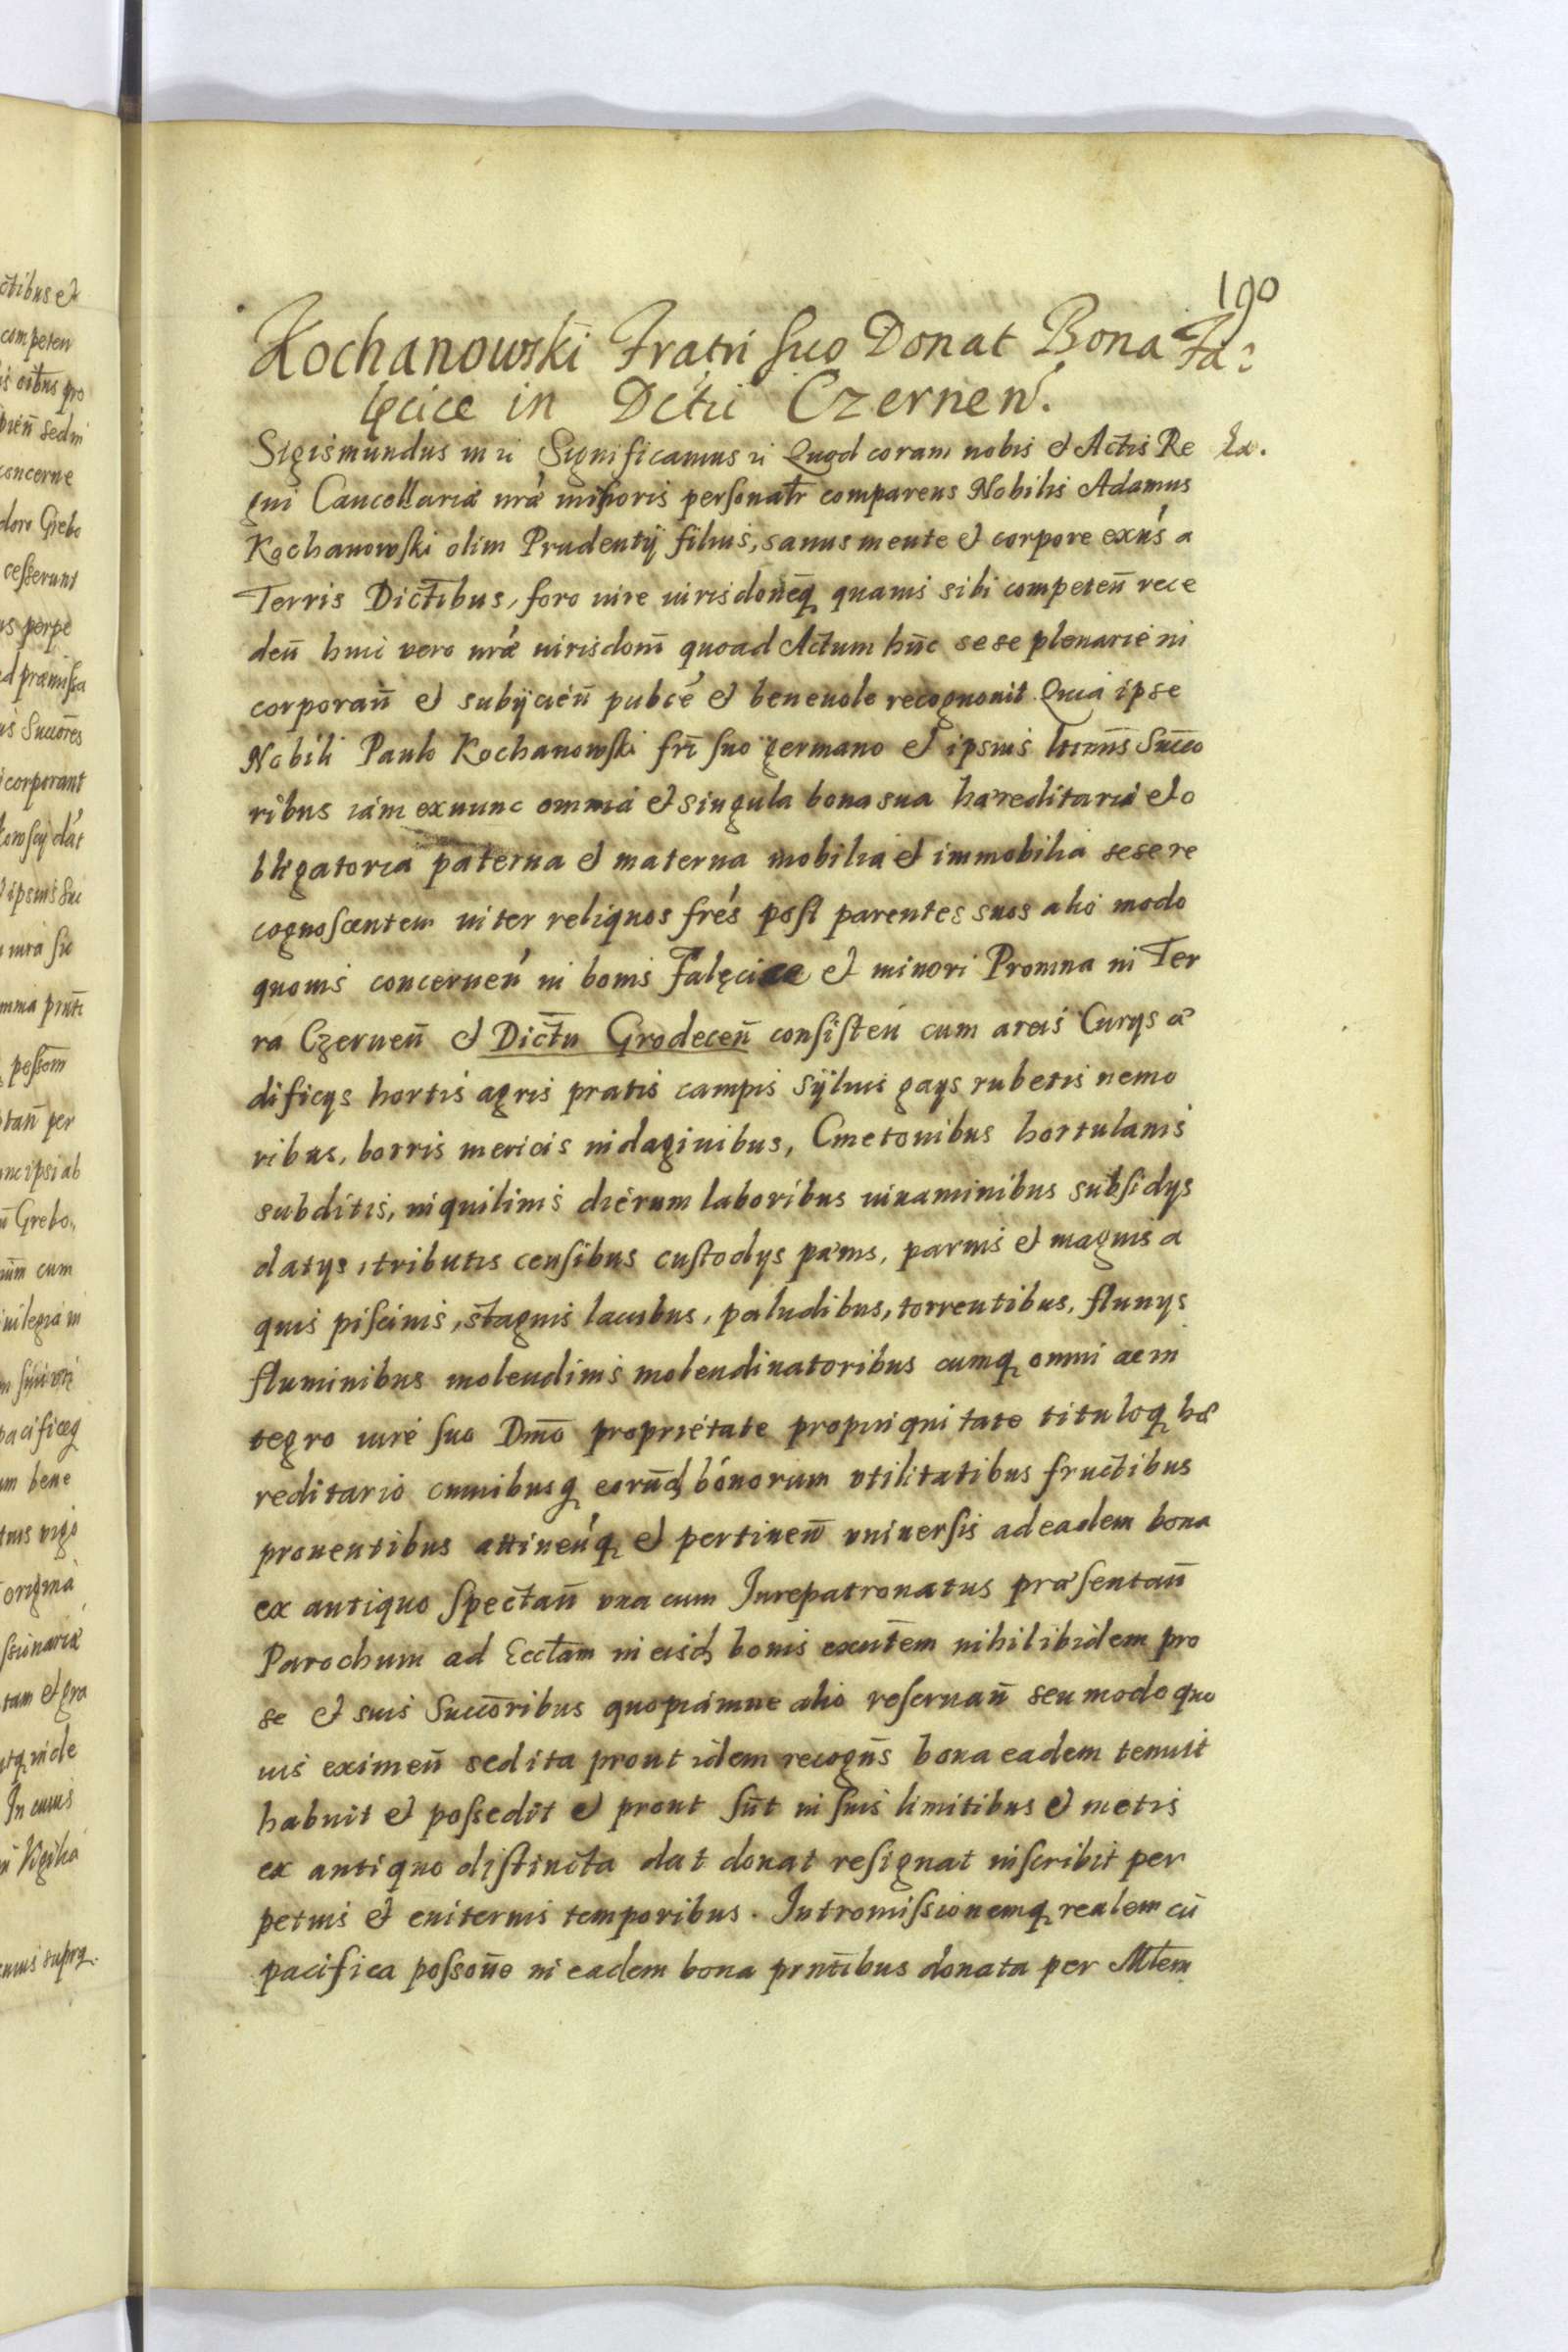 190
Kochanowski Fratri suo Donat Bona Fa:
lęcice in Dctũ Czernen.
Sigismundus III ꝛc Significamus ꝛc Quod coram nobis et Actis Re Ex.
gni Cancellariæ nrae minoris personalr comparens Nobilis Adamus
Kochanowski olim Prudentij filius, sanus mente et corpore exns a
Terris Districtibus, foro iure iurisdoneq quauis sibi competen rece
den huic vero nrae iurisdoni quoad Actum hunc sese plenarie in
corporan et subijcien pubce et beneuole recognouit. Quia ipse
Nobili Paulo Kochanowski fri suo germano et ipsius ltimis Succo
ribus iam exnunc omnia et singula bona sua hæreditaria et o
bligatoria paterna et materna mobilia et immobilia sese re
cognoscentem inter reliquos fres post parentes suos alio modo
quouis concernen in bonis Falęcice et minori Promna in Ter
ra Czernen et Dictu Grodecen consisten cum areis Curys æ
dificys hortis agris pratis campis syluis gays rubetis nemo
ribus, borris mericis indaginibus, Cmetonibus hortulanis
subditis, inquilinis dierum laboribus iuuaminibus subsidys
datys, tributis censibus custodys paruis et magnis a
quis piscinis, stagnis lacubus, paludibus, torrentibus, fluuys
fluminibus molendinis molendinatoribus cumq omni ac in
tegro iure suo Dmo proprietate propinquitate tituloq hæ
reditario omnibusq eorund bonorum vtilitatibus fructibus
prouentibus attinenq et pertinen vniuersis ad eadem bona
ex antiquo spectan vna cum Iurepatronatus præsentan
Parochum ad Ecctam in eisd bonis exntem nihil ibidem pro
se et suis Succoribus quopiamue alio reseruan seu modo quo
uis eximen sed ita prout idem recogns bona eadem tenuit
habuit et possedit et prout sunt in suis limitibus et metis
ex antiquo distincta dat donat resignat inscribit per
petuis et euiternis temporibus. Intromissionemq realem cu
pacifica possone in eadem bona prntibus donata per Mltem